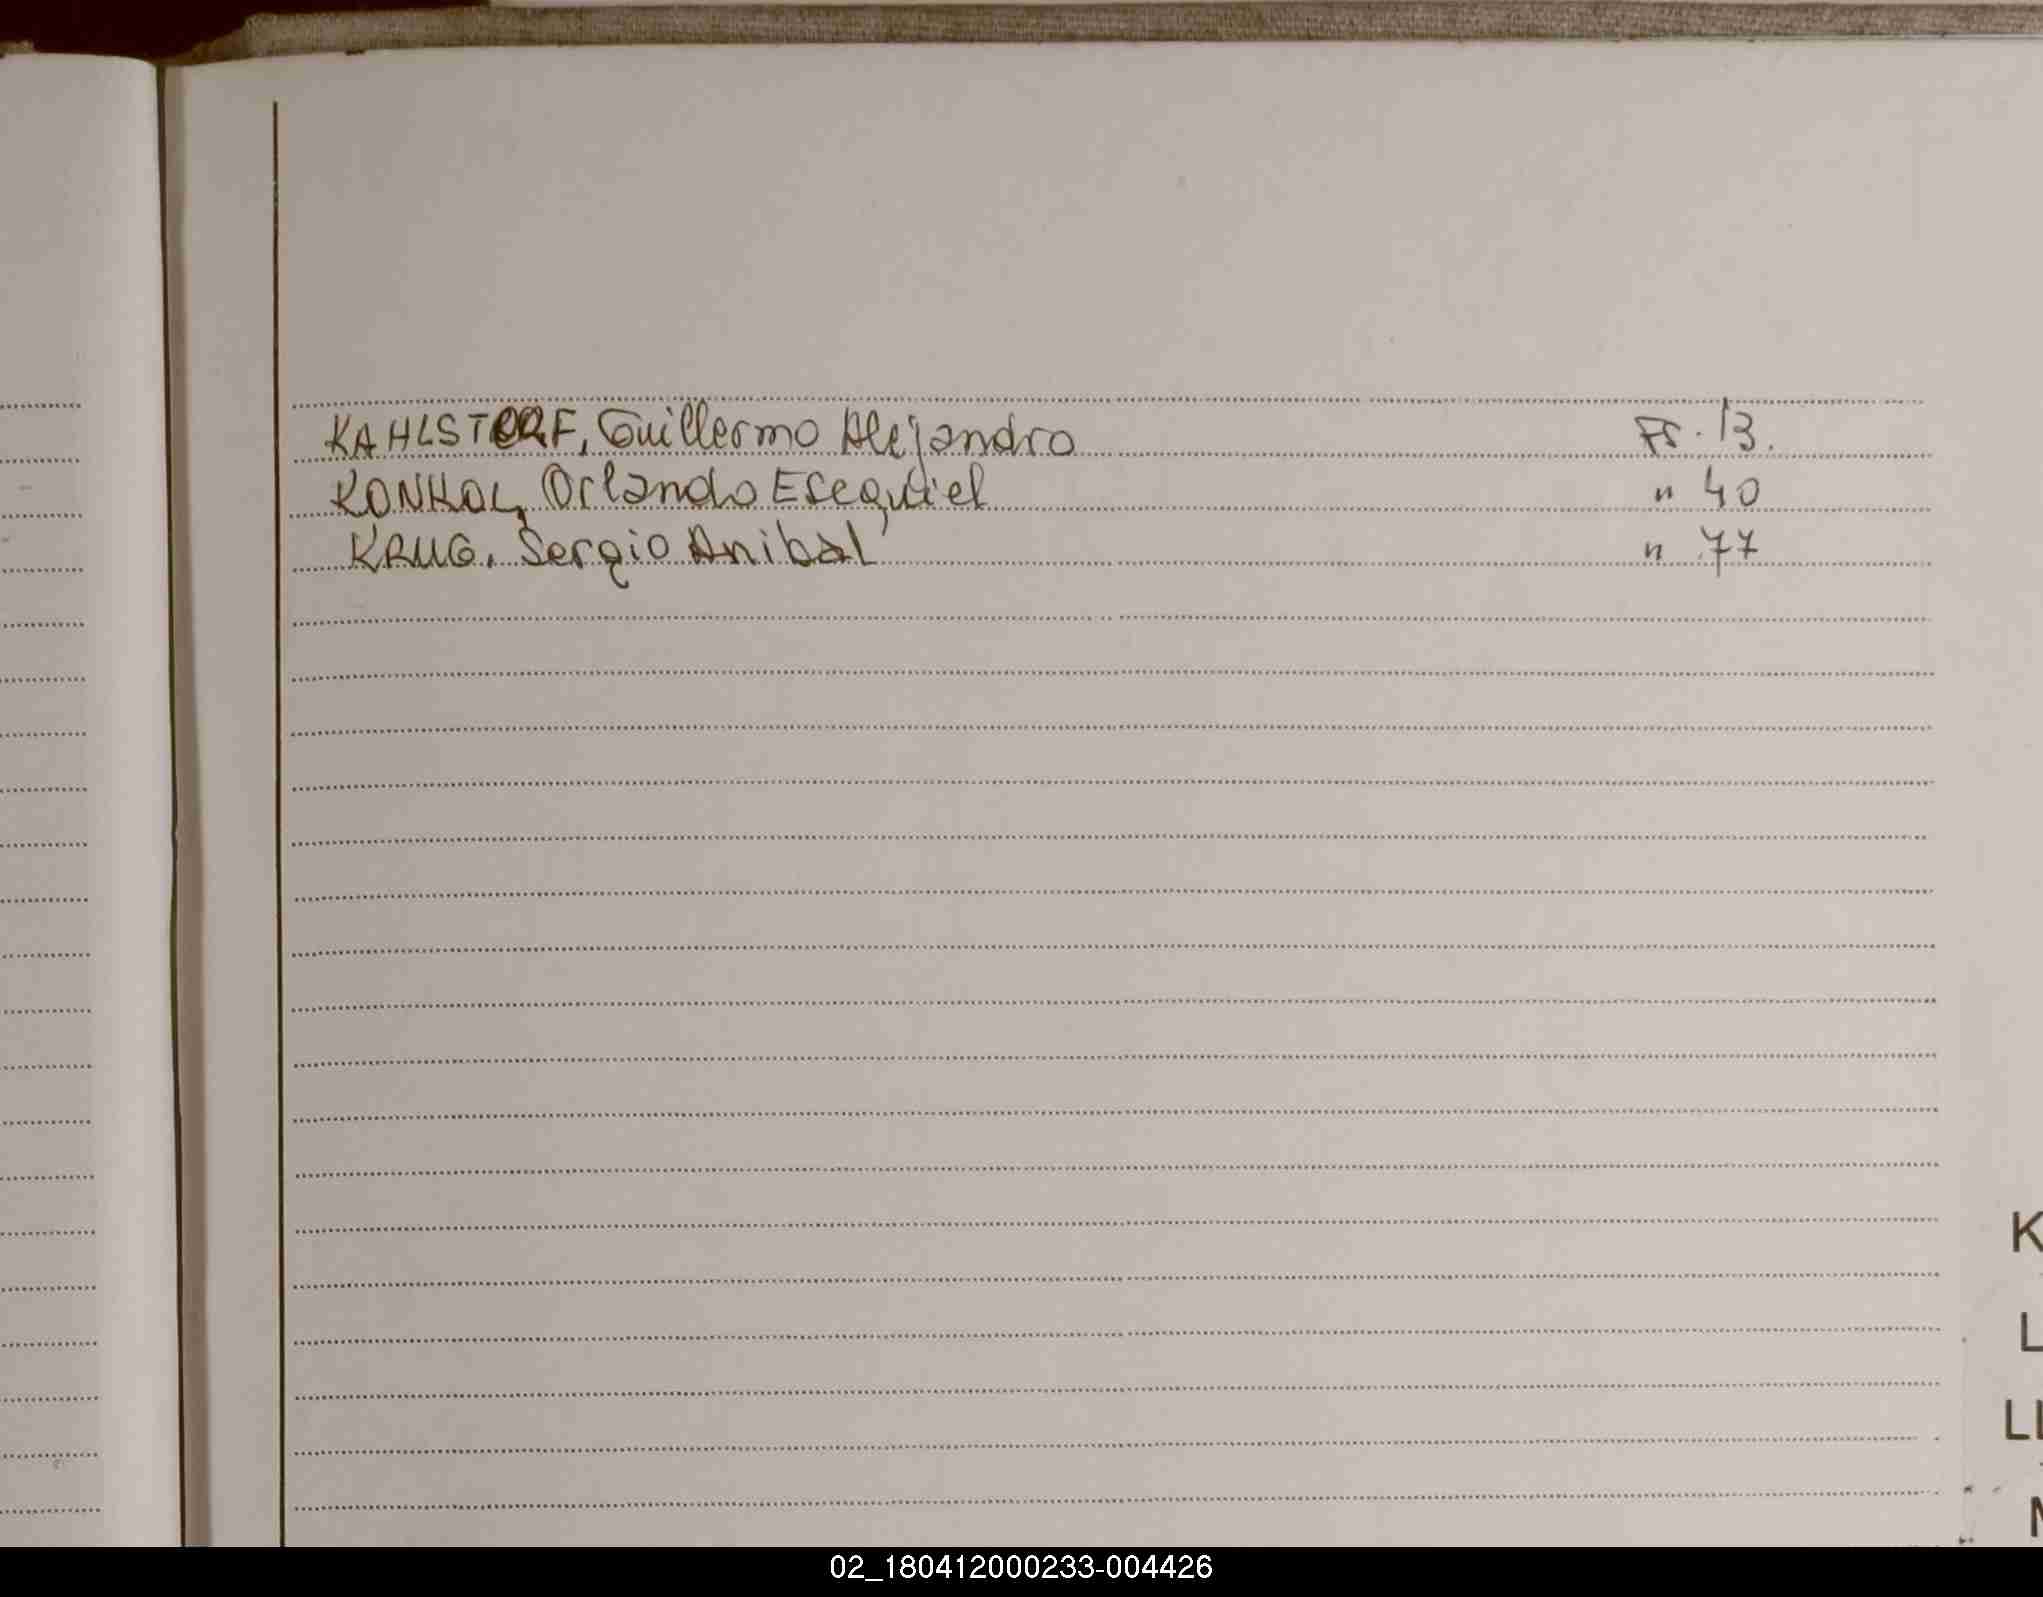 KAHLSTORF, Guillermo Alejandro Fs. 13.
KONKOL, Orlando Esequiel " 40
KRUG. Sergio Anibal " 77
K
L
LL
M
02_180412000233-004426